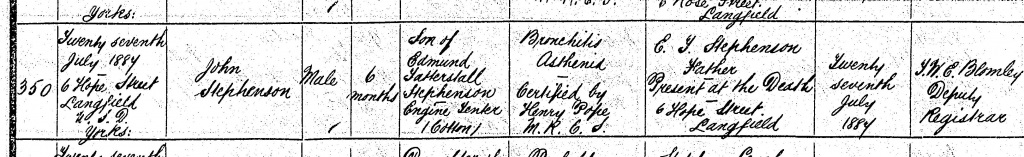 Yorks:
6 Hope Street
Langfield
350
Twenty seventh
July 1884
6 Hope Street
Langfield
U.S.D.
Yorks:
John
Stephenson
Male
6
months
Son of
Edmund
Tatterstall
Stephenson
Engine Tenter
(Cotton)
Bronchitis
Asthenia
Certified by
Henry Pope
M.R.C.S.
E. T. Stephenson
Father
Present at the Death
6 Hope Street
Langfield
Twenty
seventh
July
1884
J.W.E. Blomley
Deputy
Registrar
Twenty seventh